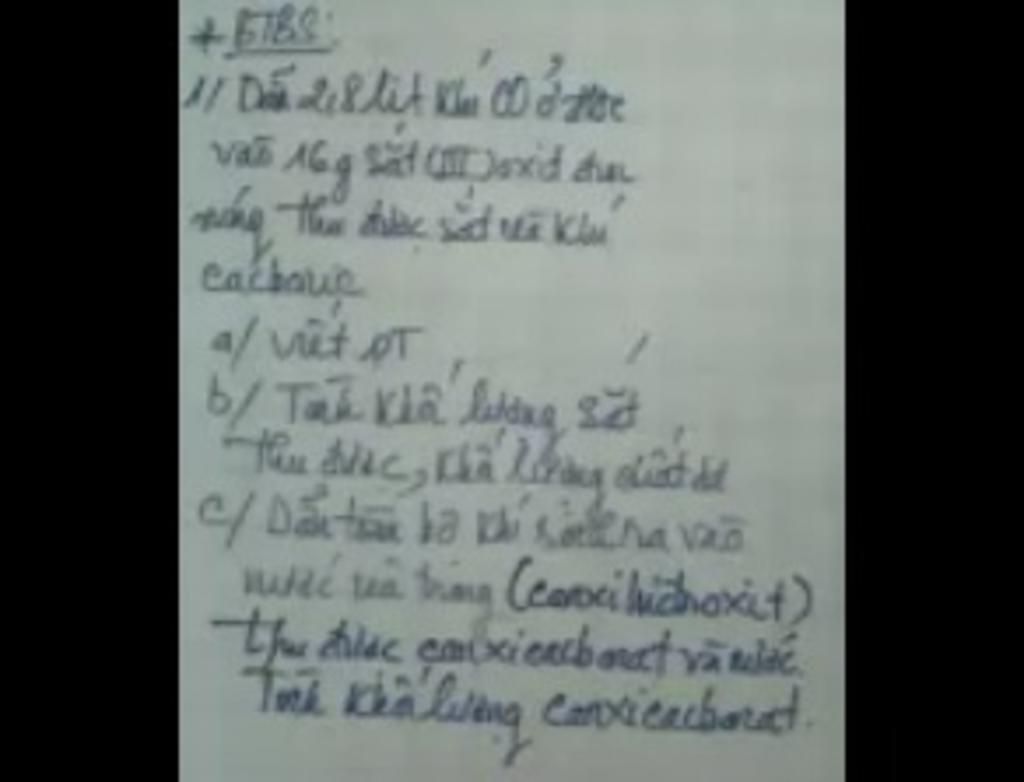 * BTBS:
1/ Dẫn 2,8 lít khí CO ở đktc
vào 16g sắt (III) oxit đun
nóng thu được sắt và khí
cacbonic
a/ Viết PT
b/ Tính khối lượng sắt
thu được, khối lượng chất dư
c/ Dẫn toàn bộ khí sinh ra vào
nước vôi trong (canxi hiđroxit)
thu được canxicacbonat và nước.
Tính khối lượng canxicacbonat.